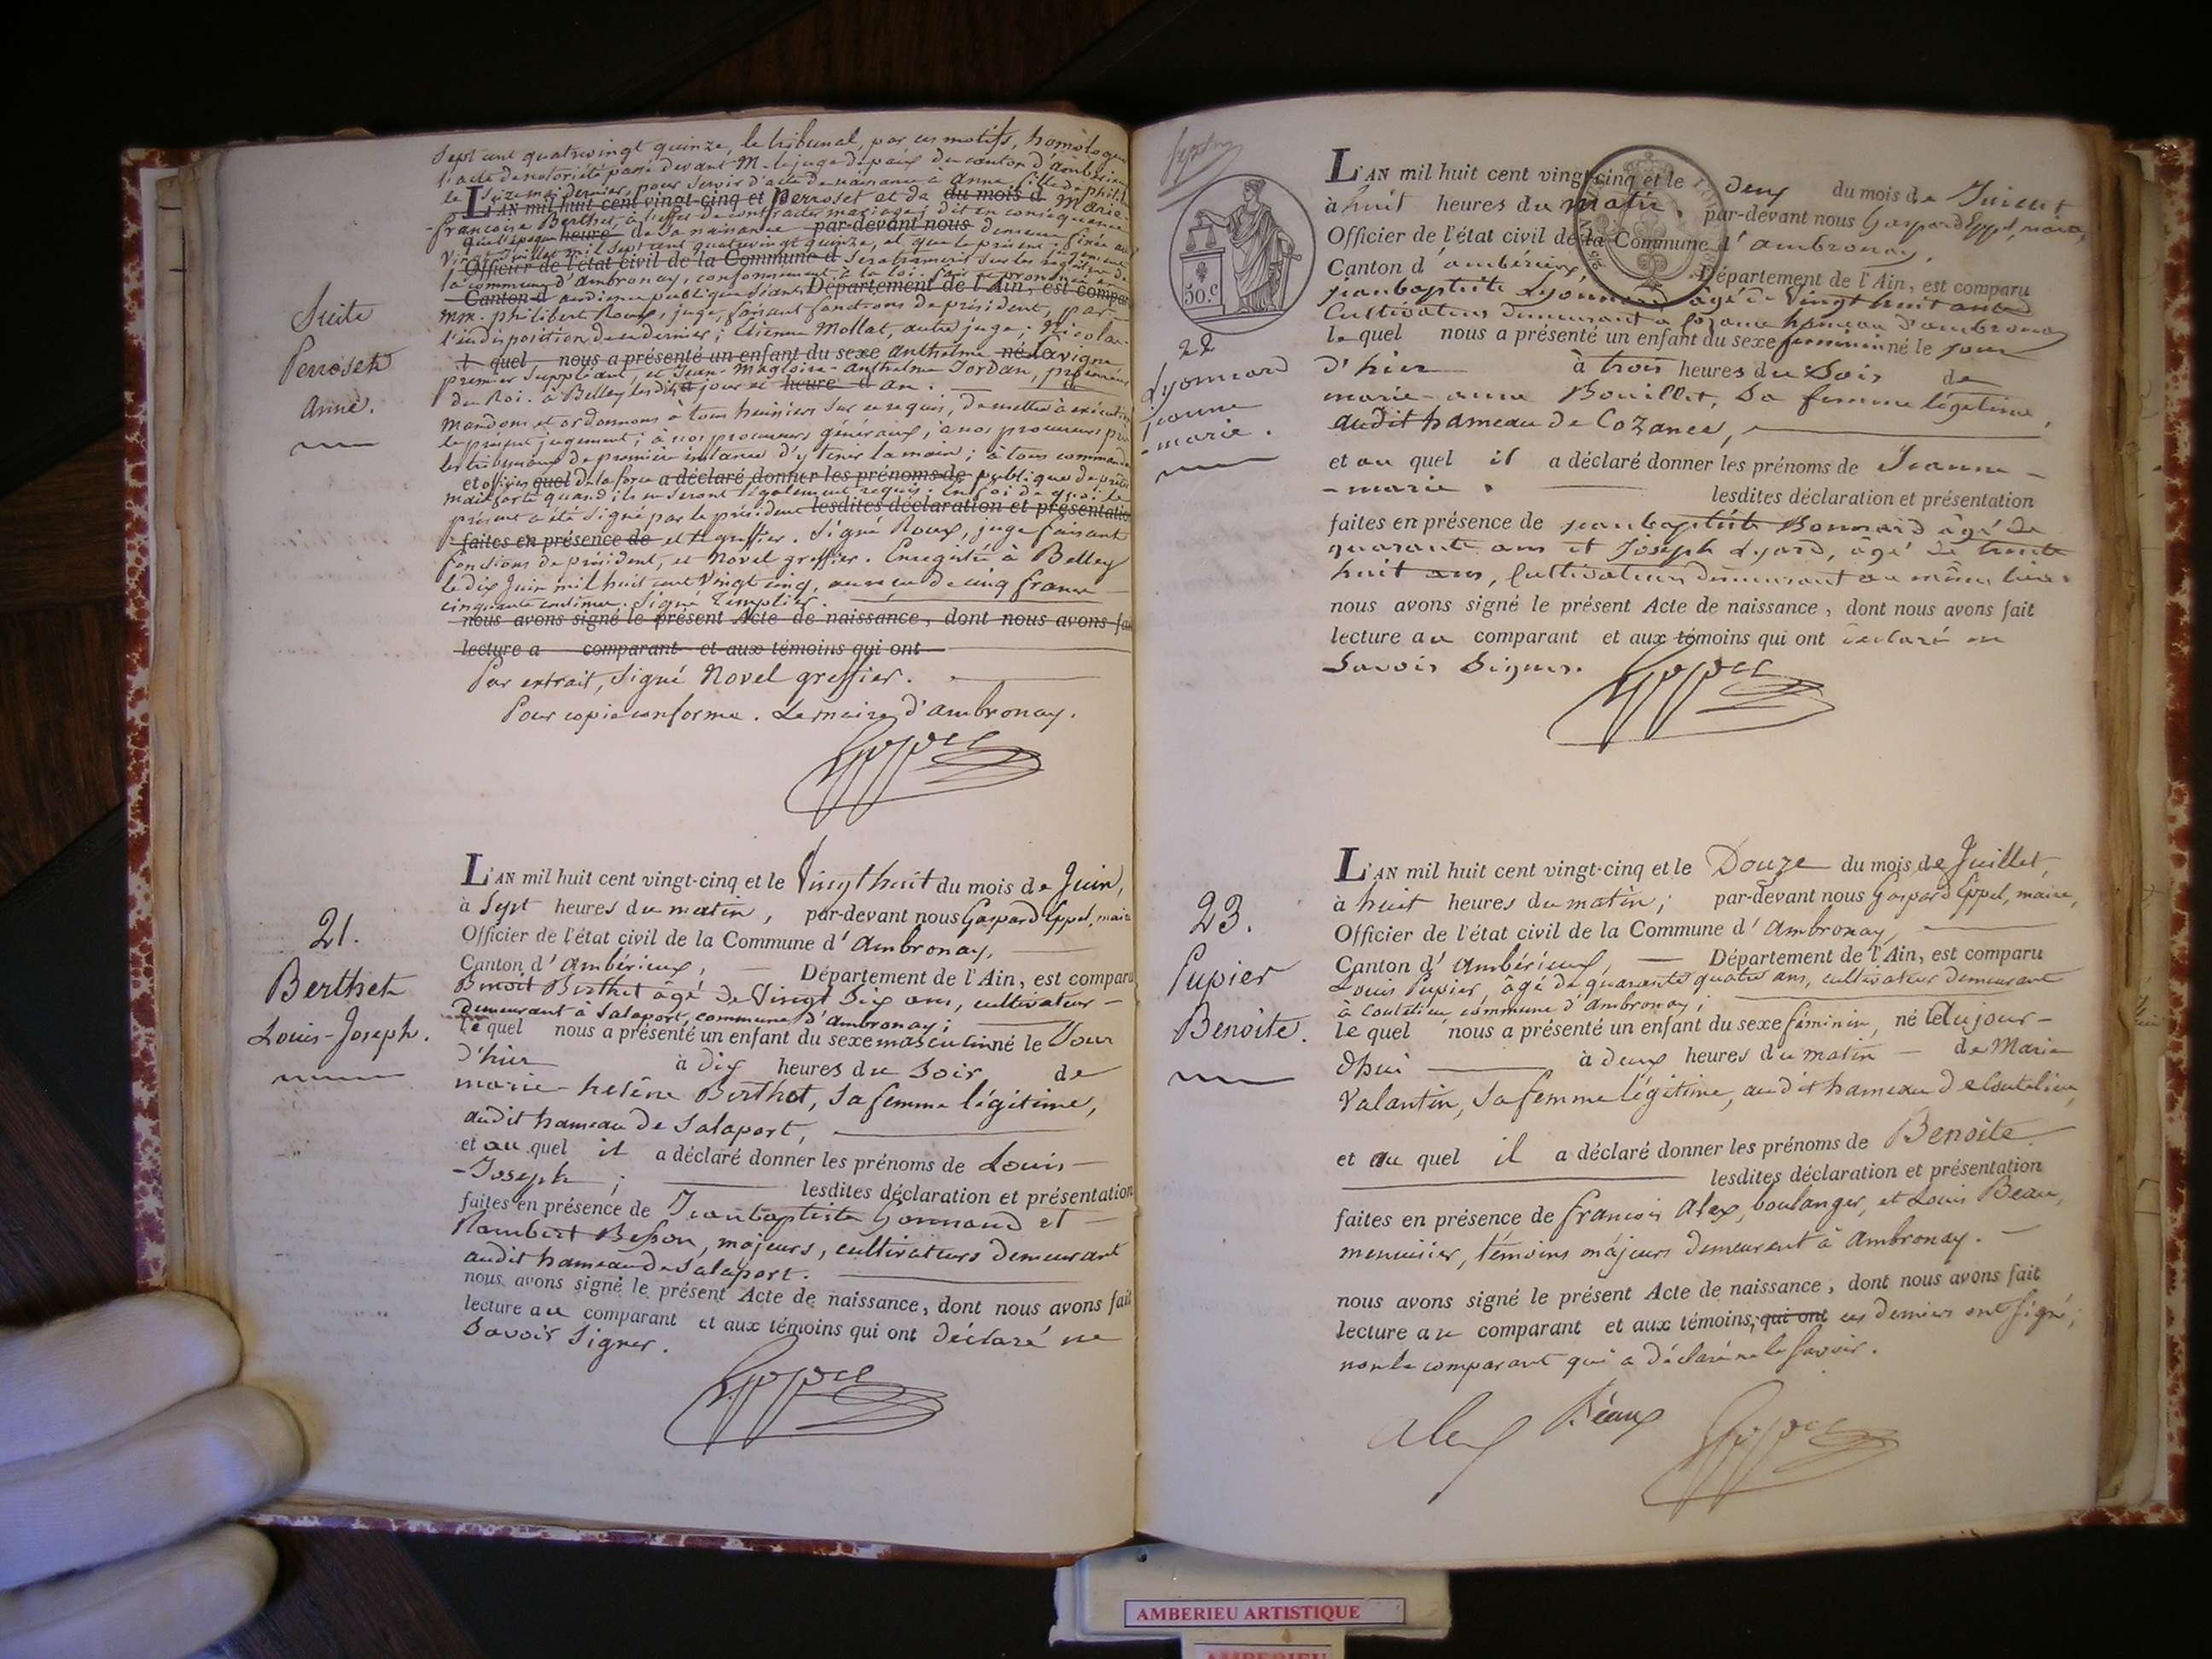 Suite
Perroset
Anne.
Sept cent quatrevingt quinze, le tribunal, par ces motifs, homologue
l'acte de notoriété passé devant M. le juge de paix du canton d'ambérieux
le seize mai dernier, pour servir d'acte de naissance à Anne fille de philib
L'AN mil huit cent vingt-cinq et Perroset et de du mois d Marie-
françoise Berthet, à l'effet de contracter mariage; dit en conséquence
quel'époque heure de sa naissance par-devant nous demeure fixée au
vingt juillet mil sept cent quatrevingt quinze, et que le présent jugement
Officier de l'état civil de la Commune d sera transcrit sur les registres de
la commune d'ambronay, conformément à la loi. fait et prononcé en
Canton d audience publique séant Département de l'Ain, est compar
MM. philibert Roux, juge, faisant fonctions de président, par
l'indisposition de ce dernier; Etienne Mollat, autre juge; Nicolas
l quel nous a présenté un enfant du sexe anthelme né le Lavigne
premier Suppléant, et Jean-Magloire-Anthelme Jordan, procureur
du Roi. à Belley lesdits jour et heure d an. d
Mandons et ordonnons à tous huissiers sur ce requis, de mettre à exécution
le présent jugement; à nos procureurs généraux, à nos procureurs près
les tribunaux de première instance d'y tenir la main; à tous commandants
et officiers quel de la force a déclaré donner les prénoms de publique de prêter
mainforte quand ils en seront légalement requis. En foi de quoi le
présent a été signé par le président lesdites déclaration et présentatio
faites en présence de et le greffier. Signé Roux, juge faisant
fonctions de président, et Novel greffier. Enregistré à Belley
le dix Juin mil huit cent vingt cinq, au reçu de cinq francs
cinquante centimes. Signé Templier.
nous avons signé le présent Acte de naissance, dont nous avons fai
lecture a comparant et aux témoins qui ont
Par extrait, Signé Novel greffier.
Pour copie conforme. Le maire d'ambronay.
Eppel
21.
Berthet
Louis-Joseph.
L'AN mil huit cent vingt-cinq et le Vingt huit du mois de Juin,
à Sept heures du matin, par-devant nous Gaspard Eppel, maire
Officier de l'état civil de la Commune d' Ambronay,
Canton d' Ambérieux, Département de l'Ain, est comparu
Benoit Berthet âgé de Vingt Six ans, cultivateur
demeurant à Salaport, commune d'Ambronay;
le quel nous a présenté un enfant du sexe masculin né le Jour
d'hier à dix heures du Soir de
marie-helène Berthet, Sa femme légitime,
audit hameau de Salaport,
et au quel il a déclaré donner les prénoms de Louis-
-Joseph; lesdites déclaration et présentation
faites en présence de Jeanbaptiste Gonnand et
Rambert Besson, majeurs, cultivateurs demeurant
audit hameau de Salaport.
nous avons signé le présent Acte de naissance, dont nous avons fait
lecture au comparant et aux témoins qui ont déclaré ne
Savoir Signer.
Eppel
50.c
22
Lyonnard
jeanne
-marie.
L'AN mil huit cent vingt-cinq et le deux du mois de Juillet
à huit heures du matin, par-devant nous Gaspard Eppel, maire,
Officier de l'état civil de la Commune d' ambronay,
Canton d' ambérieux, Département de l'Ain, est comparu
jeanbaptiste Lyonnard âgé de Vingt huit ans
Cultivateur demeurant à Cozance hameau d'ambronay
le quel nous a présenté un enfant du sexe feminin né le jour
d'hier à trois heures du Soir de
marie-anne Bouillet, Sa femme légitime,
audit hameau de Cozance,
et au quel il a déclaré donner les prénoms de Jeanne-
-marie. lesdites déclaration et présentation
faites en présence de jeanbaptiste Bonnard âgé de
quarante ans et Joseph Lyard, âgé de trente
huit ans, Cultivateurs demeurant au même lieu.
nous avons signé le présent Acte de naissance, dont nous avons fait
lecture au comparant et aux témoins qui ont déclaré ne
Savoir Signer.
Eppel
23.
Pupier
Benoîte.
L'AN mil huit cent vingt-cinq et le Douze du mois de Juillet,
à huit heures du matin; par-devant nous Gaspard Eppel, maire,
Officier de l'état civil de la Commune d' Ambronay,
Canton d' Ambérieux, Département de l'Ain, est comparu
Louis Pupier, âgé de quarante quatre ans, cultivateur demeurant
à Coutelieu, commune d'Ambronay;
le quel nous a présenté un enfant du sexe féminin, né le aujour-
d'hui à deux heures du matin de Marie
Valantin, Sa femme légitime, audit hameau de Coutelieu,
et au quel il a déclaré donner les prénoms de Benoîte
lesdites déclaration et présentation
faites en présence de françois Alex, boulanger, et Louis Beau,
menuisier, témoins majeurs demeurant à Ambronay.
nous avons signé le présent Acte de naissance, dont nous avons fait
lecture au comparant et aux témoins, qui ont ces derniers ont Signé,
non le comparant qui a déclaré ne le Savoir.
Alex Béaux Eppel
AMBERIEU ARTISTIQUE
AMBERIEU